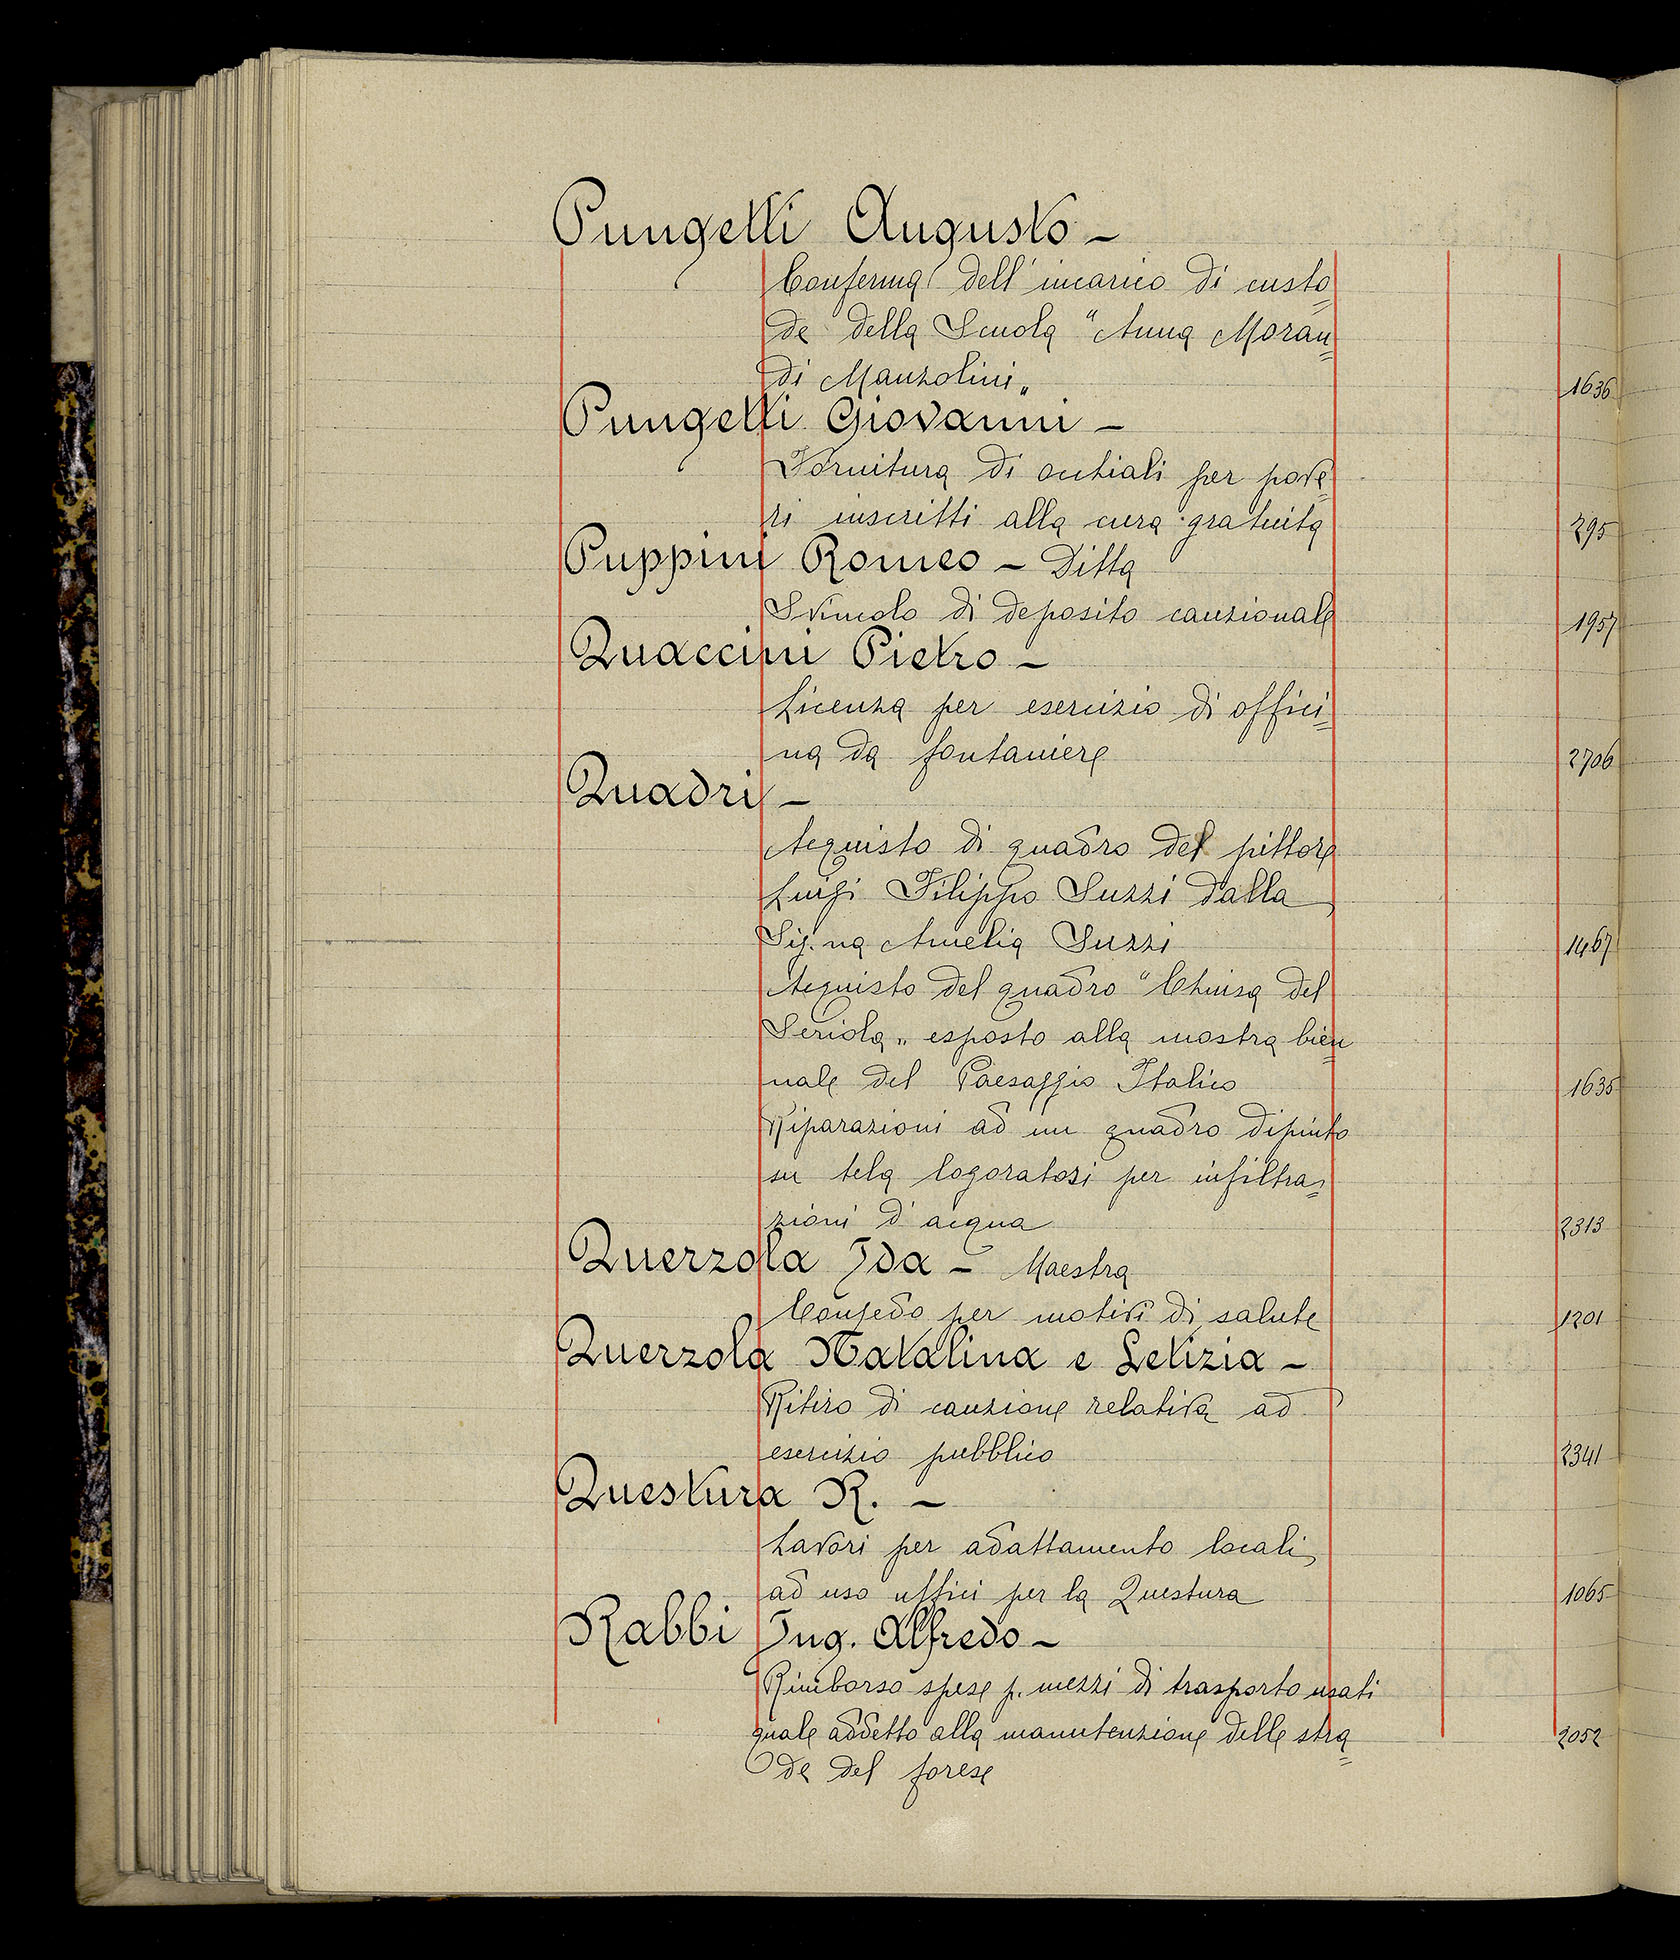 Pungetti Augusto -
Conferma dell'incarico di custo=
de della Scuola "Anna Moran=
di Manzolini„ 1636
Pungetti Giovanni -
Fornitura di occhiali per pove=
ri inscritti alla cura gratuita 295
Puppini Romeo - Ditta
Svincolo di deposito cauzionale 1957
Quaccini Pietro -
Licenza per esercizio di offici=
na da fontaniere 2706
Quadri -
Acquisto di quadro del pittore
Luigi Filippo Suzzi dalla
Sig.na Amelia Suzzi 1467
Acquisto del quadro "Chiusa del
Seriola„ esposto alla mostra bien=
nale del Paesaggio Italico 1635
Riparazioni ad un quadro dipinto
su tela logoratosi per infiltra=
zioni d'acqua 2313
Querzola Ida - Maestra
Congedo per motivi di salute 1201
Querzola Natalina e Letizia -
Ritiro di cauzione relativa ad
esercizio pubblico 2341
Questura R. -
Lavori per adattamento locali
ad uso uffici per la Questura 1065
Rabbi Ing. Alfredo -
Rimborso spese p. mezzi di trasporto usati
quale addetto alla manutenzione delle stra= 2052
de del forese